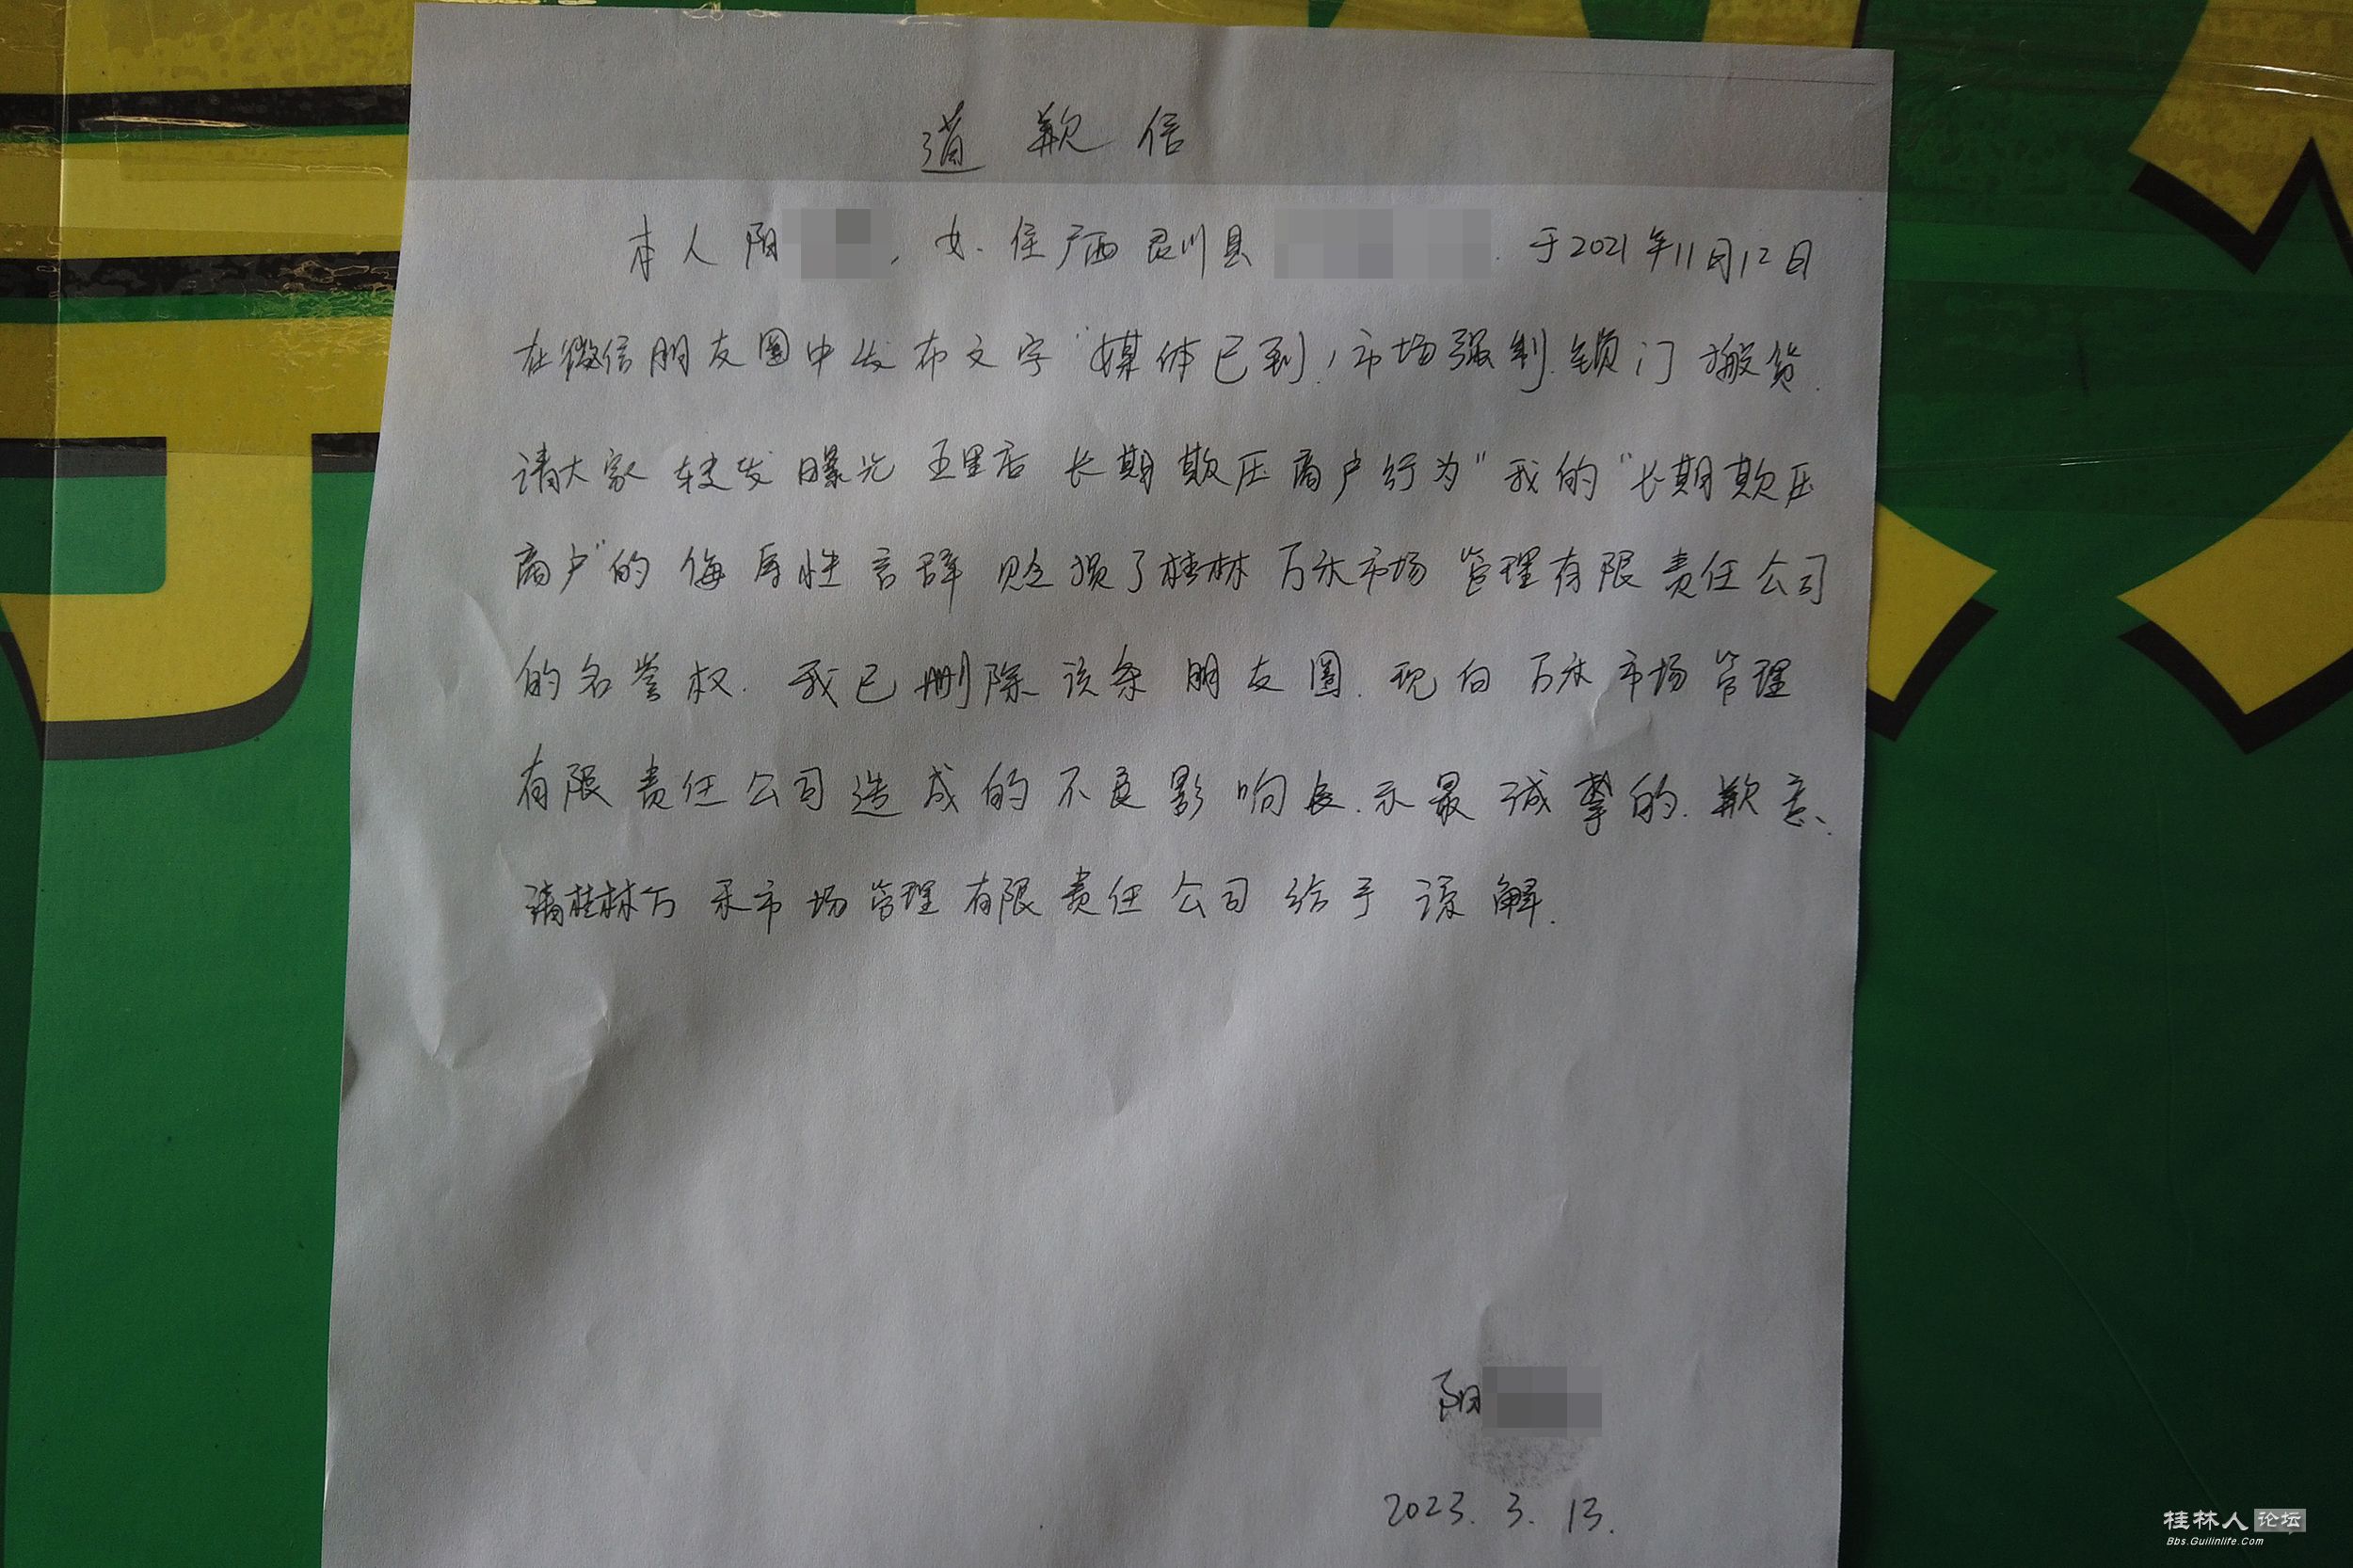 道歉信
本人阳，女.住广西灵川县.于2021年11月12日
在微信朋友圈中发布文字"媒体已到，市场强制锁门搬货.
请大家转发曝光五里店长期欺压商户行为"我的"长期欺压
商户"的侮辱性言辞贬损了桂林万禾市场管理有限责任公司
的名誉权.我已删除该条朋友圈.现向万禾市场管理
有限责任公司造成的不良影响表示最诚挚的歉意、
请桂林万禾市场管理有限责任公司给予谅解.
阳
2023.3.13.
桂林人论坛
Bbs.Guilinlife.Com